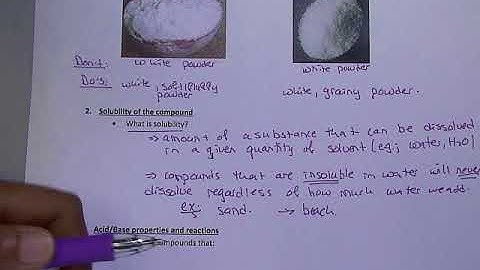 Don't: white powder
white powder
Do's: white, soft, fluffy
powder
white, grainy powder.
2. Solubility of the compound
• What is solubility?
⇒ amount of a substance that can be dissolved
in a given quantity of solvent (eg; water, H2O)
⇒ compounds that are insoluble in water will never
dissolve regardless of how much water we add.
ex: sand. → beach.
Acid/Base properties and reactions
compounds that: